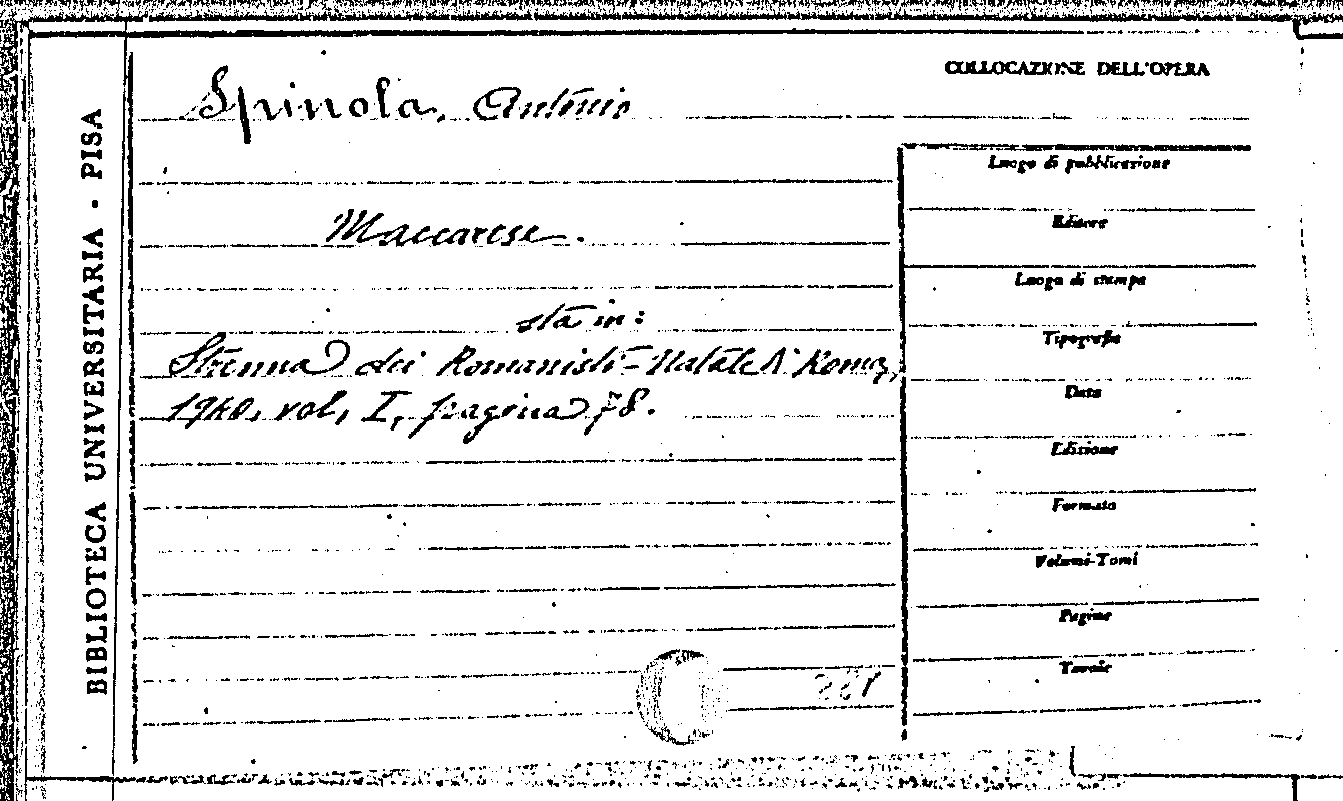 BIBLIOTECA UNIVERSITARIA - PISA
COLLOCAZIONE DELL'OPERA
Spinola, Antonio
Maccarese.
sta in:
Strenna dei Romanisti - Natale di Roma,
1940, vol. I, pagina 78.
Luogo di pubblicazione
Editore
Luogo di stampa
Tipografia
Data
Edizione
Formato
Volumi-Tomi
Pagine
Tavole